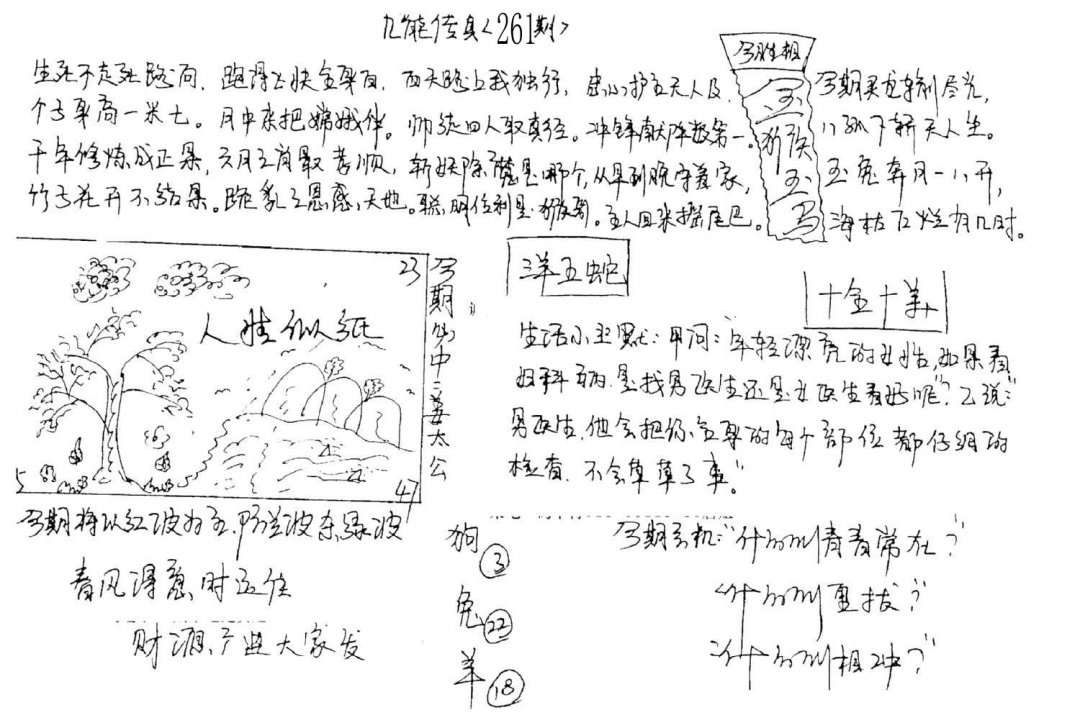 九能传真〈261期〉
今胜相
生死不走死路向，跑得止快全身百，西天路上我独行，忠心护主无人及，
今期灵龙斩剃尽光，
个子身高一米七。月中来把嫦娥伴。师徒四人取真经。冲锋献阵数第一。
千年修炼成正果，六月三肖最孝顺，斩妖除魔是哪个，从早到晚守着家，
玉兔奔月一八开，
竹子花开不结果。跪乳之恩感天地。聪明伶利是猴哥。主人回来摇尾巴。
海枯石烂有几时。
23
人生似纸
5
47
今期必中三姜太公
三羊五蛇
十全十美
生活小幽默：甲问：“年轻漂亮的女性，如果看
妇科病，是找男医生还是女医生看好呢”？乙说：“
男医生，他会把你全身的每个部位都仔细的
检查，不会草草了事。”
今期将以红波为主，防兰波杀绿波
春风得意时运佳
财源广进大家发
狗③
兔㉒
羊⑱
今期玄机：“什么叫青春常在？”
“什么叫重拔？”
“什么叫相冲？”